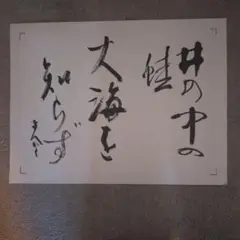 井の中の
蛙
大海を
知らず